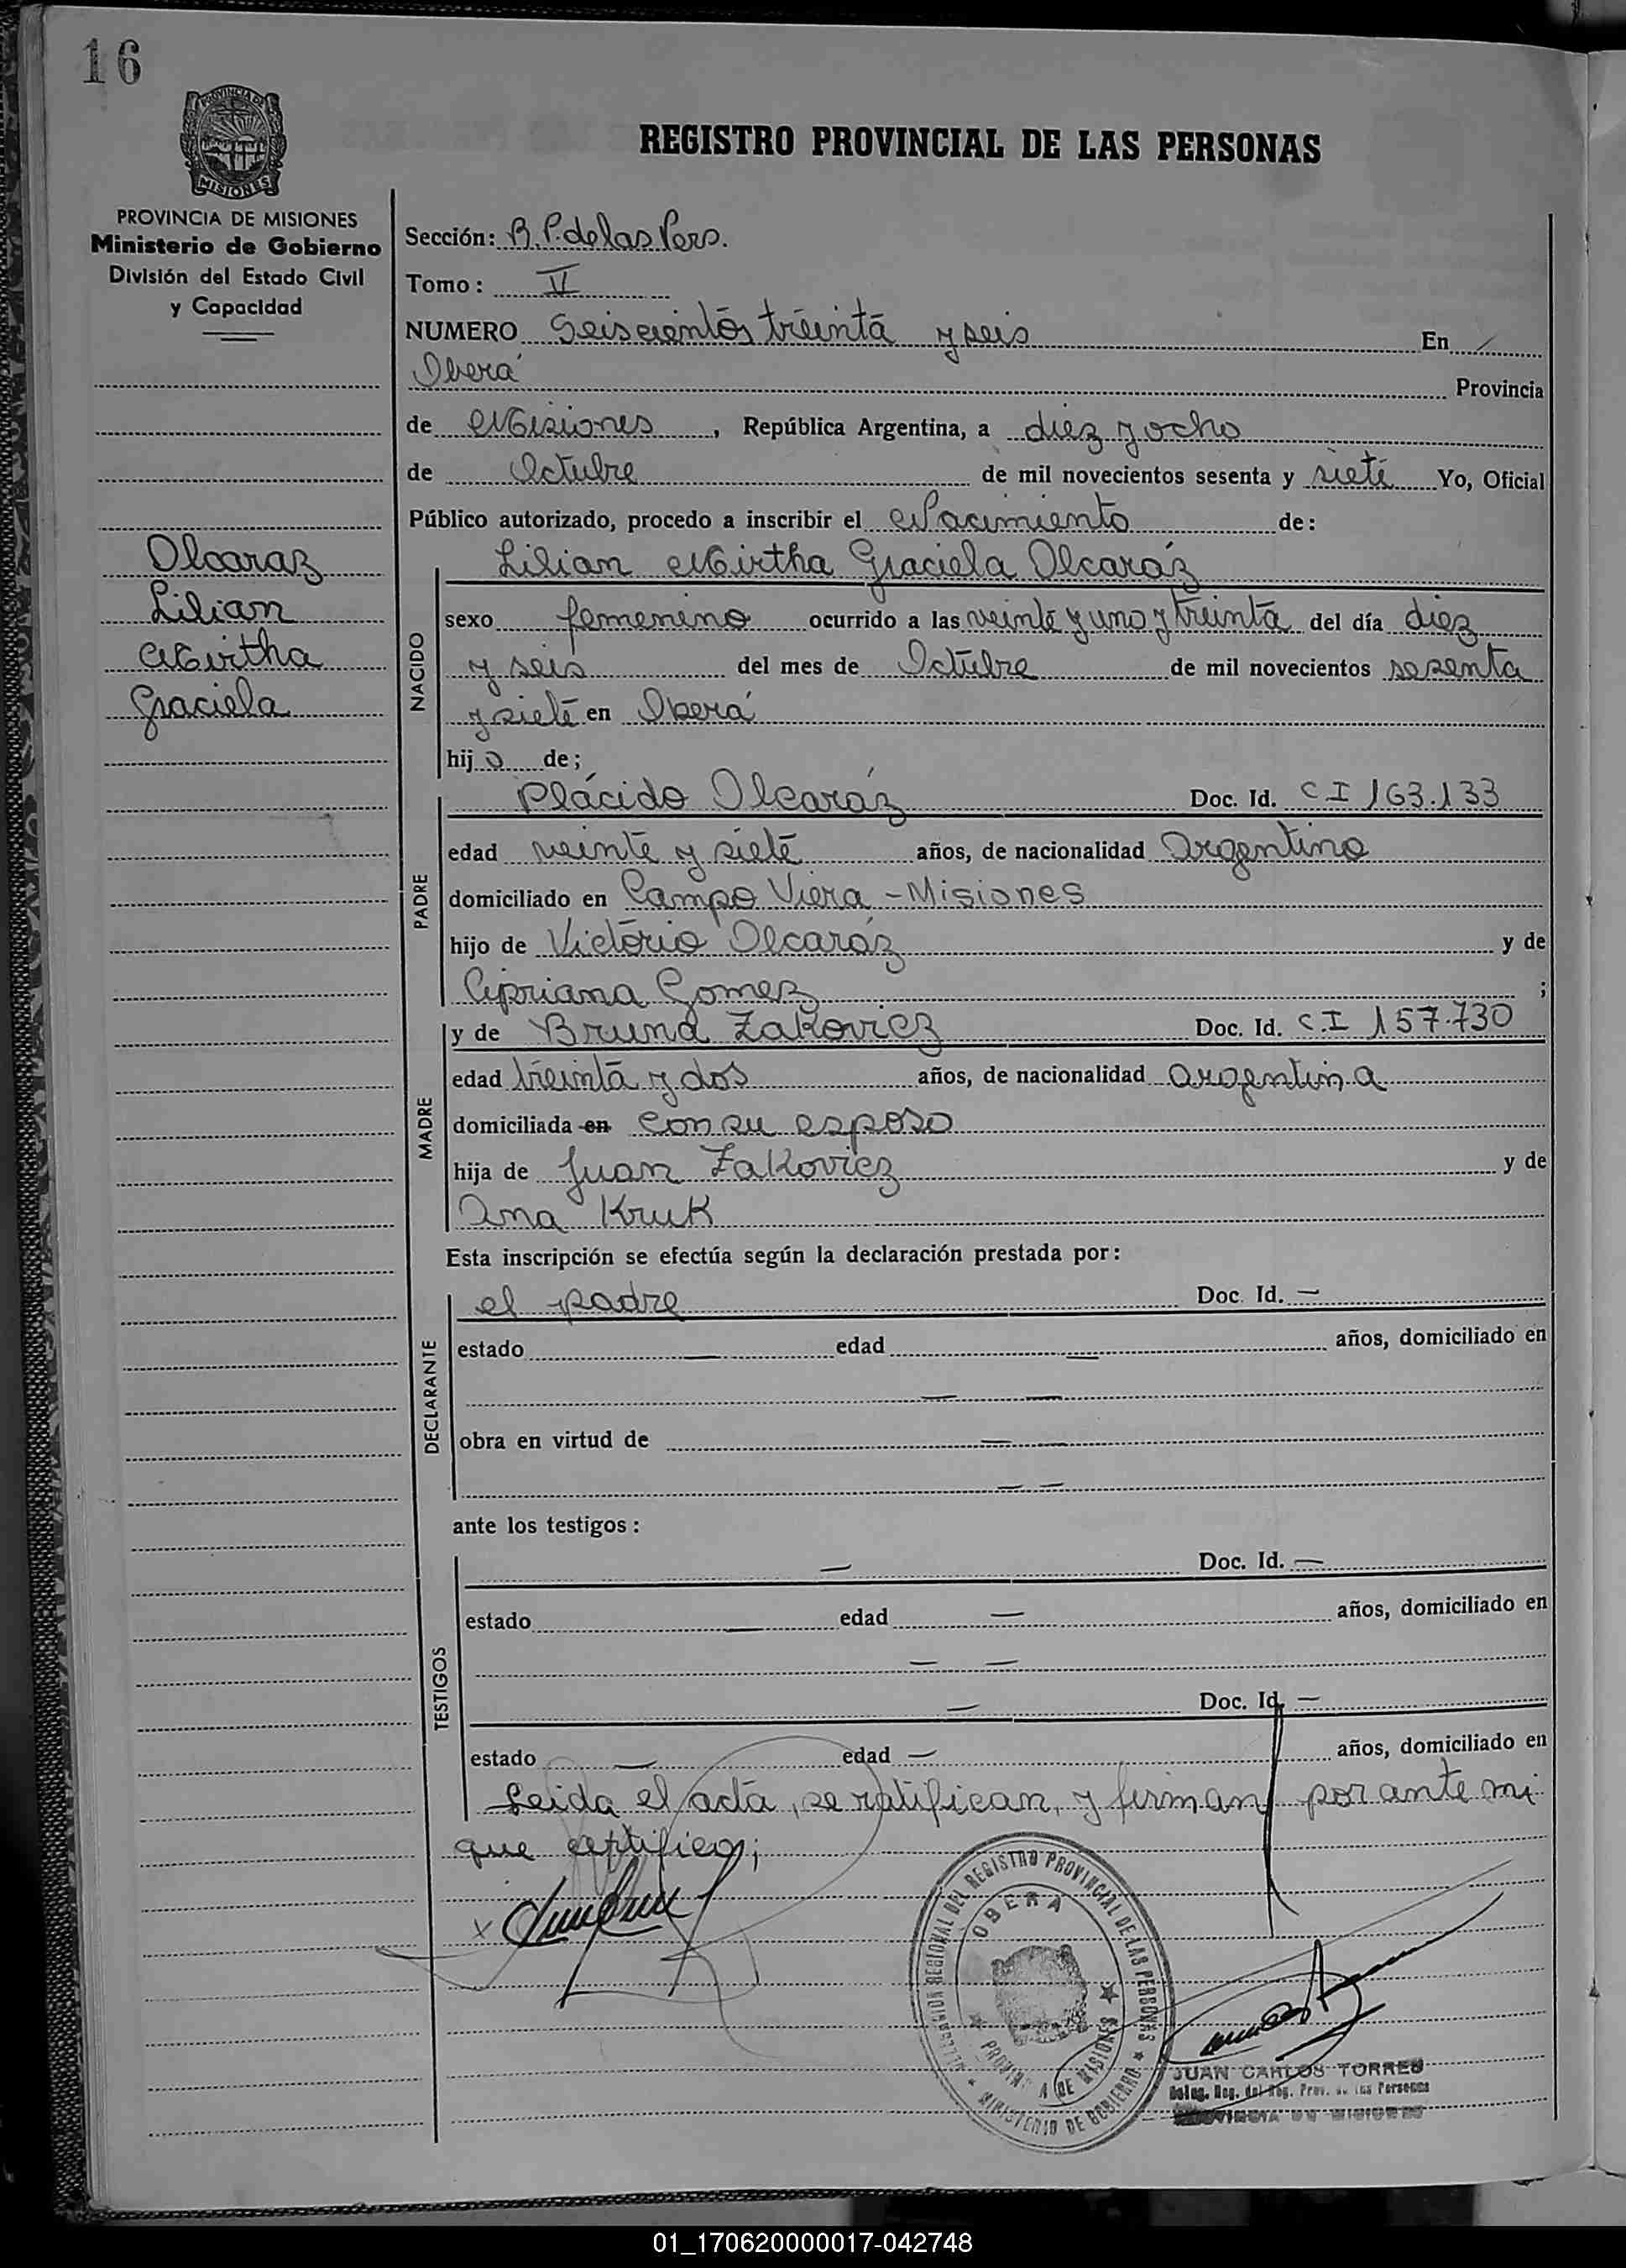 16
PROVINCIA DE
MISIONES
REGISTRO PROVINCIAL DE LAS PERSONAS
PROVINCIA DE MISIONES
Ministerio de Gobierno
División del Estado Civil
y Capacidad
Alcaraz
Lilian
Mirtha
Graciela
Sección: R. P. de las Pers.
Tomo: II
NUMERO Seiscientos treinta y seis En /
Oberá Provincia
de Misiones, República Argentina, a diez y ocho
de Octubre de mil novecientos sesenta y siete Yo, Oficial
Público autorizado, procedo a inscribir el Nacimiento de:
NACIDO
Lilian Mirtha Graciela Alcaráz
sexo femenino ocurrido a las veinte y uno y treinta del día diez
y seis del mes de Octubre de mil novecientos sesenta
y siete en Oberá
hija de;
PADRE
Plácido Alcaráz Doc. Id. C I 163.133
edad veinte y siete años, de nacionalidad Argentino
domiciliado en Campo Viera - Misiones
hijo de Victorio Alcaráz y de
Cipriana Gomez ;
MADRE
y de Bruna Zakovicz Doc. Id. C.I 157.730
edad treinta y dos años, de nacionalidad argentina
domiciliada en con su esposo
hija de Juan Zakovicz y de
Ana Kruk
Esta inscripción se efectúa según la declaración prestada por:
DECLARANTE
el padre Doc. Id. —
estado — edad — años, domiciliado en
— —
obra en virtud de — —
— —
ante los testigos:
TESTIGOS
— Doc. Id. —
estado — edad — años, domiciliado en
— —
— Doc. Id. —
estado — edad — años, domiciliado en
Leida el acta, se ratifican, y firman por ante mi
que certifico;
x
DELEGACION REGIONAL DEL REGISTRO PROVINCIAL DE LAS PERSONAS
OBERA
PROVINCIA DE MISIONES
MINISTERIO DE GOBIERNO
JUAN CARLOS TORRES
Deleg. Reg. del Reg. Prov. de las Personas
PROVINCIA DE MISIONES
01_170620000017-042748